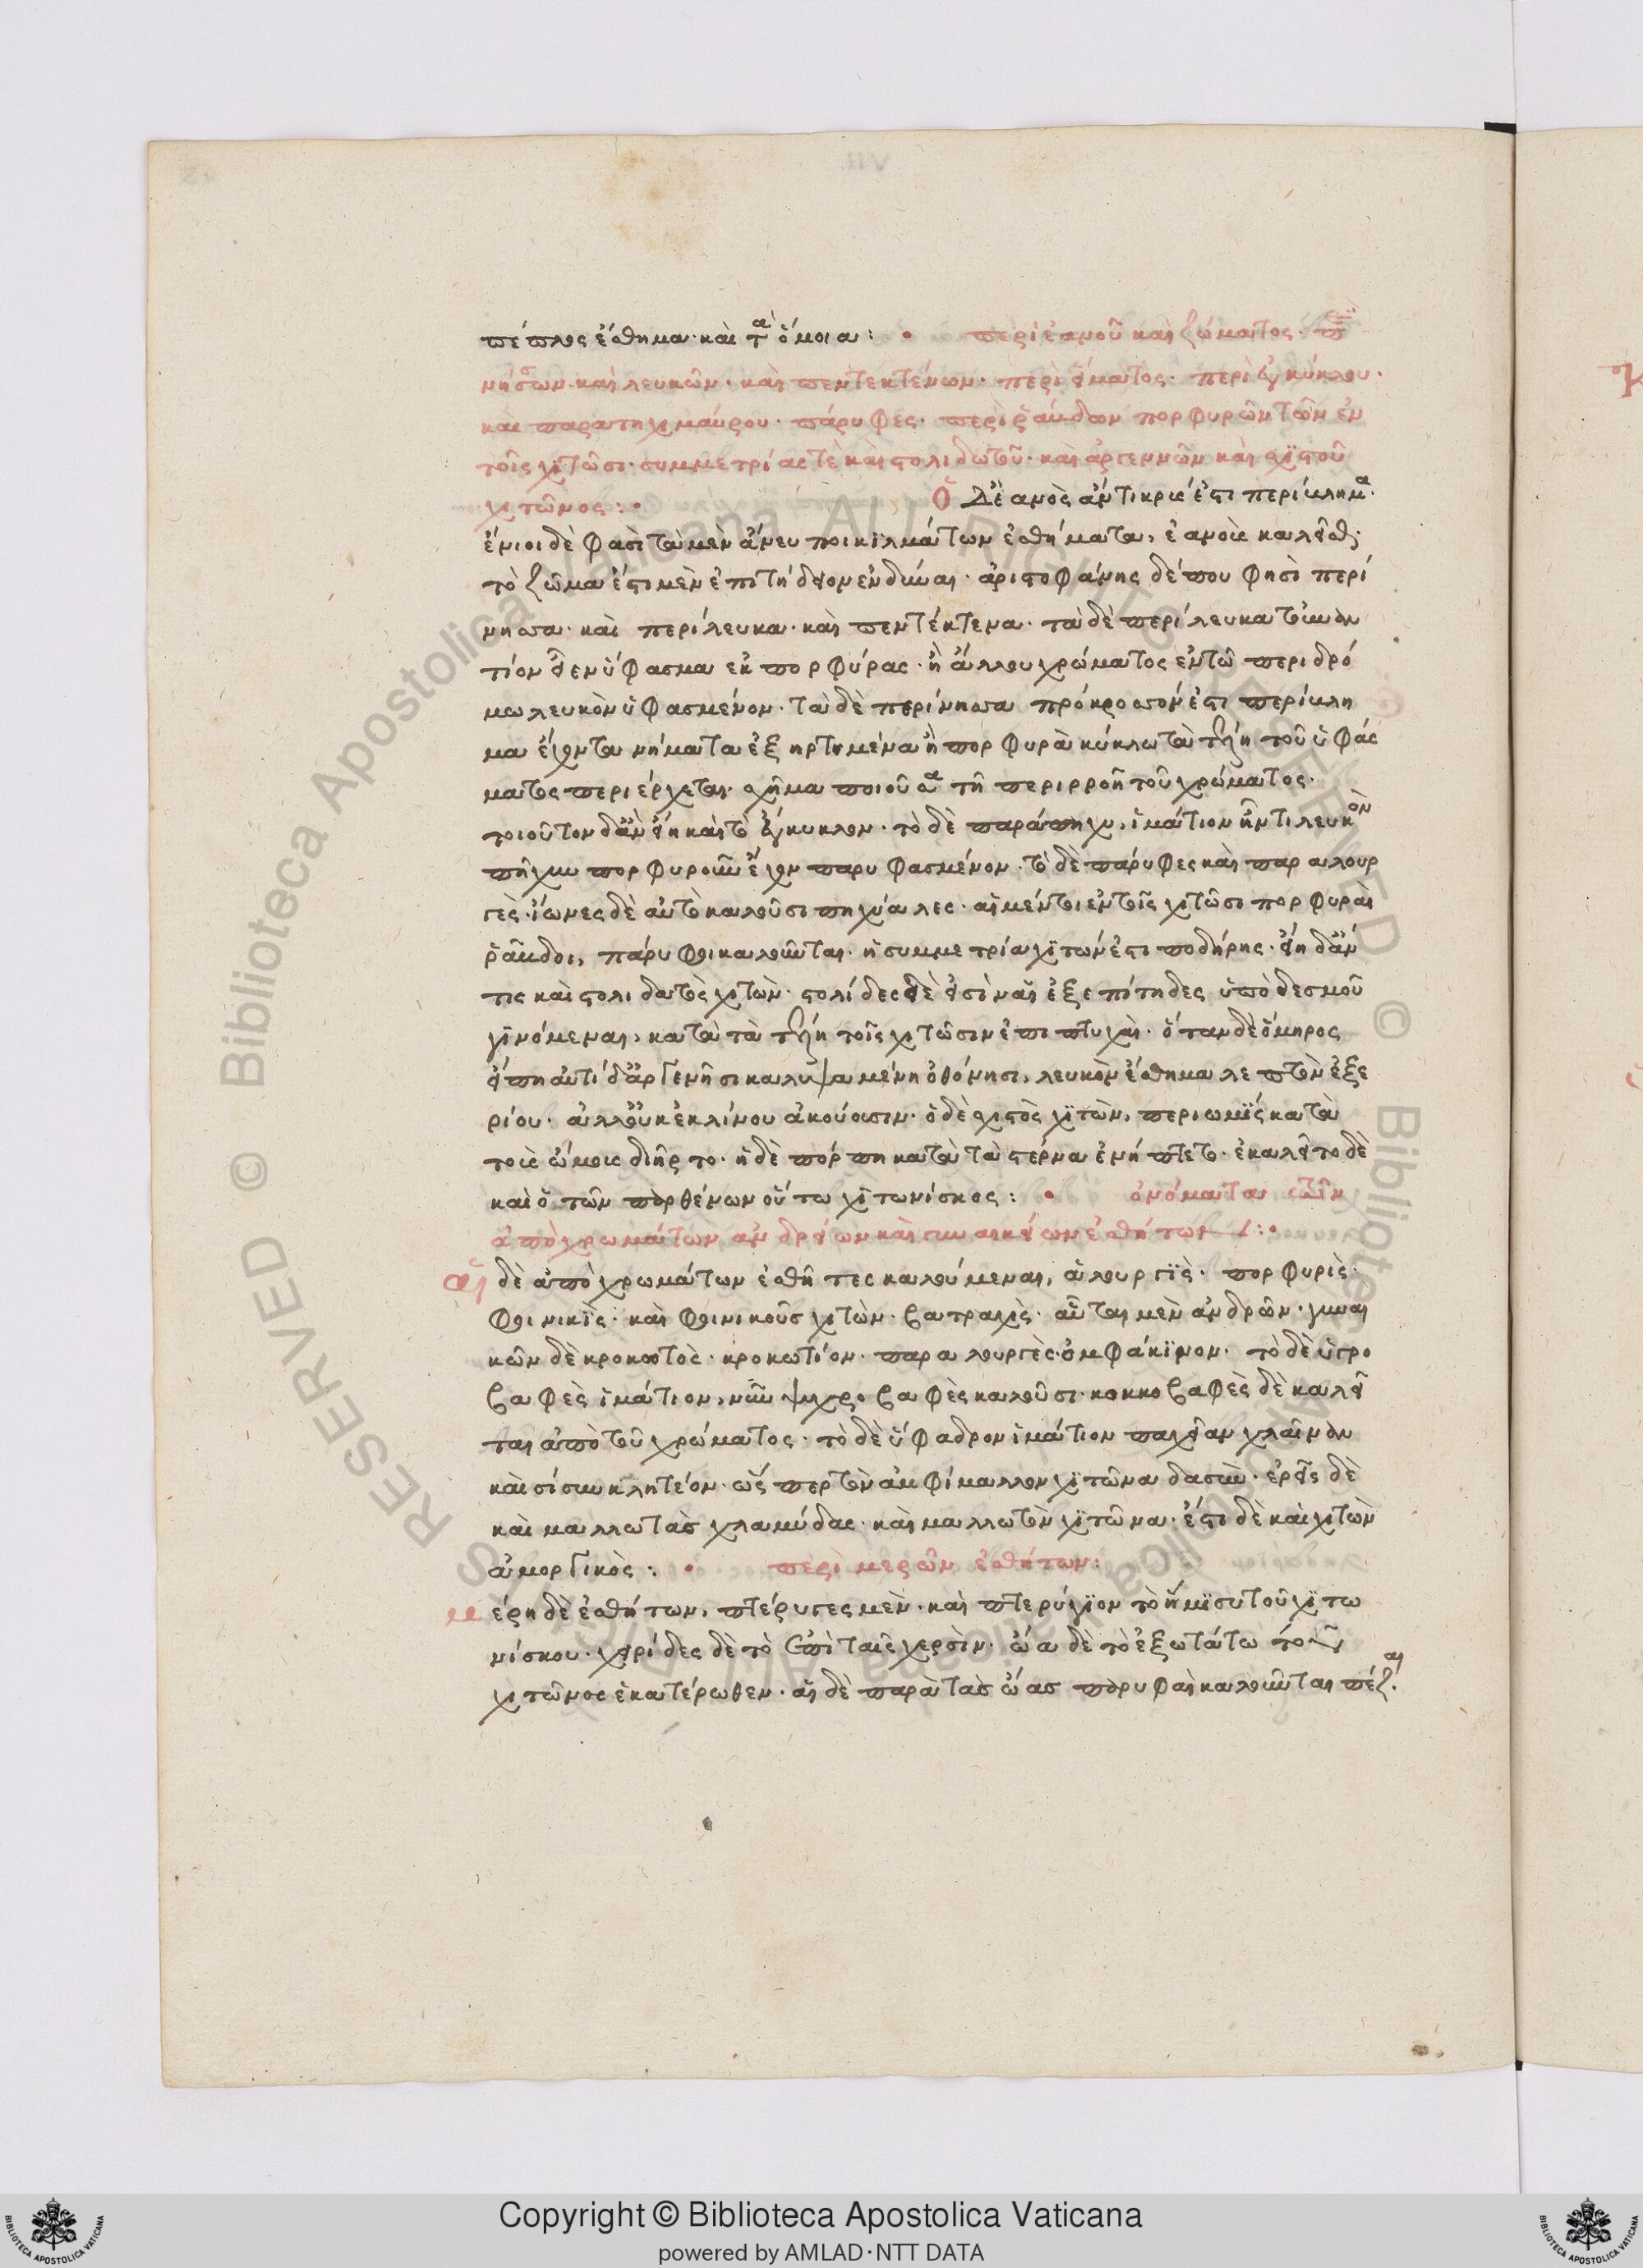 πέπλος ἐσθημα· καὶ τὰ ὅμοια: • περὶ ἑανοῦ καὶ ζώματος·
νήσσων καὶ λευκῶν· καὶ πεντεκτένων· περὶ εἵματος· περὶ ἐγκύκλου·
καὶ παραπηχμαύρου· πάρυφες· περὶ ῥάβδων πορφυρῶν τῶν ἐν
τοῖς χιτῶσι· συμμετρίας τὲ καὶ στολιδωτοῦ· καὶ ἀργεννῶν καὶ σχιστοῦ
χιτῶνος: •
Ὁ Δὲ ἑανὸς ἀντικρύ ἐστι περίβλημα·
ἔνιοι δὲ φασὶ τὰ μὲν ἄνευ ποικιλμάτων ἐσθήματα, ἑανοὺς καλεῖσθαι·
τὸ ζῶμα ἔστι μὲν ἐπιτήδειον ἐνδῦναι· ἀριστοφάνης δέ που φησὶ περί
νησα· καὶ περίλευκα· καὶ πεντέκτενα· τὰ δὲ περίλευκα τοὐναν
τίον εἶεν ὕφασμα ἐκ πορφύρας· ἢ ἄλλου χρώματος ἐν τῶ περιδρό
μω λευκὸν ὑφασμένον· τὰ δὲ περίνησα πρόκροσσόν ἐστι περίβλη
μα ἔχοντα νήματα ἐξηρτημένα ἢ πορφυρὰ κύκλω τὰ τέλη τοῦ ὑφάς
ματος περιέρχεται· σχῆμα ποιοῦσα τῆ περιρροῆ τοῦ χρώματος·
τοιοῦτον δ' ἂν εἴη καὶ τὸ ἔγκυκλον· τὸ δὲ παράπηχυ, ἱμάτιον ἦν τι λευκὸν
πῆχυν πορφυροῦν ἔχον παρυφασμένον· τὸ δὲ πάρυφες καὶ παραλουρ
γὲς· ἴωνες δὲ αὐτὸ καλοῦσι πηχύαλες· αἱ μέντοι ἐν τοῖς χιτῶσι πορφυραὶ
ῥάβδοι, πάρυφοι καλοῦνται· ἡ συμμετρία χιτών ἐστι ποδήρης· εἴη δ' ἄν
τις καὶ στολιδωτὸς χιτὼν· στολίδες δὲ εἰσὶν αἱ ἐξεπίτηδες ὑπὸ δεσμοῦ
γινόμεναι, κατὰ τὰ τέλη τοῖς χιτῶσιν ἐπιπτυχαὶ· ὅταν δὲ ὅμηρος
εἴπη αὐτὶ δ' ἀργενῆσι καλυψαμένη ὀθόνησι, λευκὸν ἔσθημα λεπτὸν ἐξ ε
ρίου· ἀλλ' οὐκ ἐκ λίνου ἀκούουσιν· ὁ δὲ σχιστὸς χιτὼν, περὶ ὠμὶς κατὰ
τοὺς ὤμους διῆρτο· ἡ δὲ πόρπη κατὰ τὰ στέρνα ἐνήπτετο· ἐκαλεῖτο δὲ
καὶ ὁ τῶν παρθένων οὕτω χιτωνίσκος: • ὀνόματα τῶν
ἀπὸ χρωμάτων ἀνδρείων καὶ γυναικείων ἐσθήτων: •
αἱ δὲ ἀπὸ χρωμάτων ἐσθῆτες καλούμεναι, ἁλουργὶς· πορφυρὶς·
φοινικὶς· καὶ φοινικοῦς χιτὼν· βατραχὶς· αὗται μὲν ἀνδρῶν· γυναι
κῶν δὲ κροκωτὸς· κροκωτίον· παραλουργὲς· ὀμφάκινον· τὸ δὲ ὑγρο
βαφὲς ἱμάτιον, νῦν ψυχροβαφὲς καλοῦσι· κοκκοβαφὲς δὲ καλεῖ
ται ἀπὸ τοῦ χρώματος· τὸ δὲ ὕφαδρον ἱμάτιον παχεῖαν χλαῖναν
καὶ σίσυν κλητέον· ὥσπερ τὸν ἀμφίμαλλον χιτῶνα δασὺν· ἐρεῖς δὲ
καὶ μαλλωτὰς χλαμύδας· καὶ μαλλωτὸν χιτῶνα· ἔστι δὲ καὶ χιτὼν
ἀμοργικὸς: • περὶ μερῶν ἐσθήτων:
μέρη δὲ ἐσθήτων, πτέρυγες μὲν· καὶ πτερύγιον τὸ ἥμισυ τοῦ χιτω
νίσκου· χειρίδες δὲ τὸ ἐπὶ ταῖς χερσὶν· ὤα δὲ τὸ ἐξωτάτω τοῦ
χιτῶνος ἑκατέρωθεν· αἱ δὲ παρὰ τὰς ὤας παρυφαὶ καλοῦνται πέζαι·
Copyright © Biblioteca Apostolica Vaticana
powered by AMLAD·NTT DATA